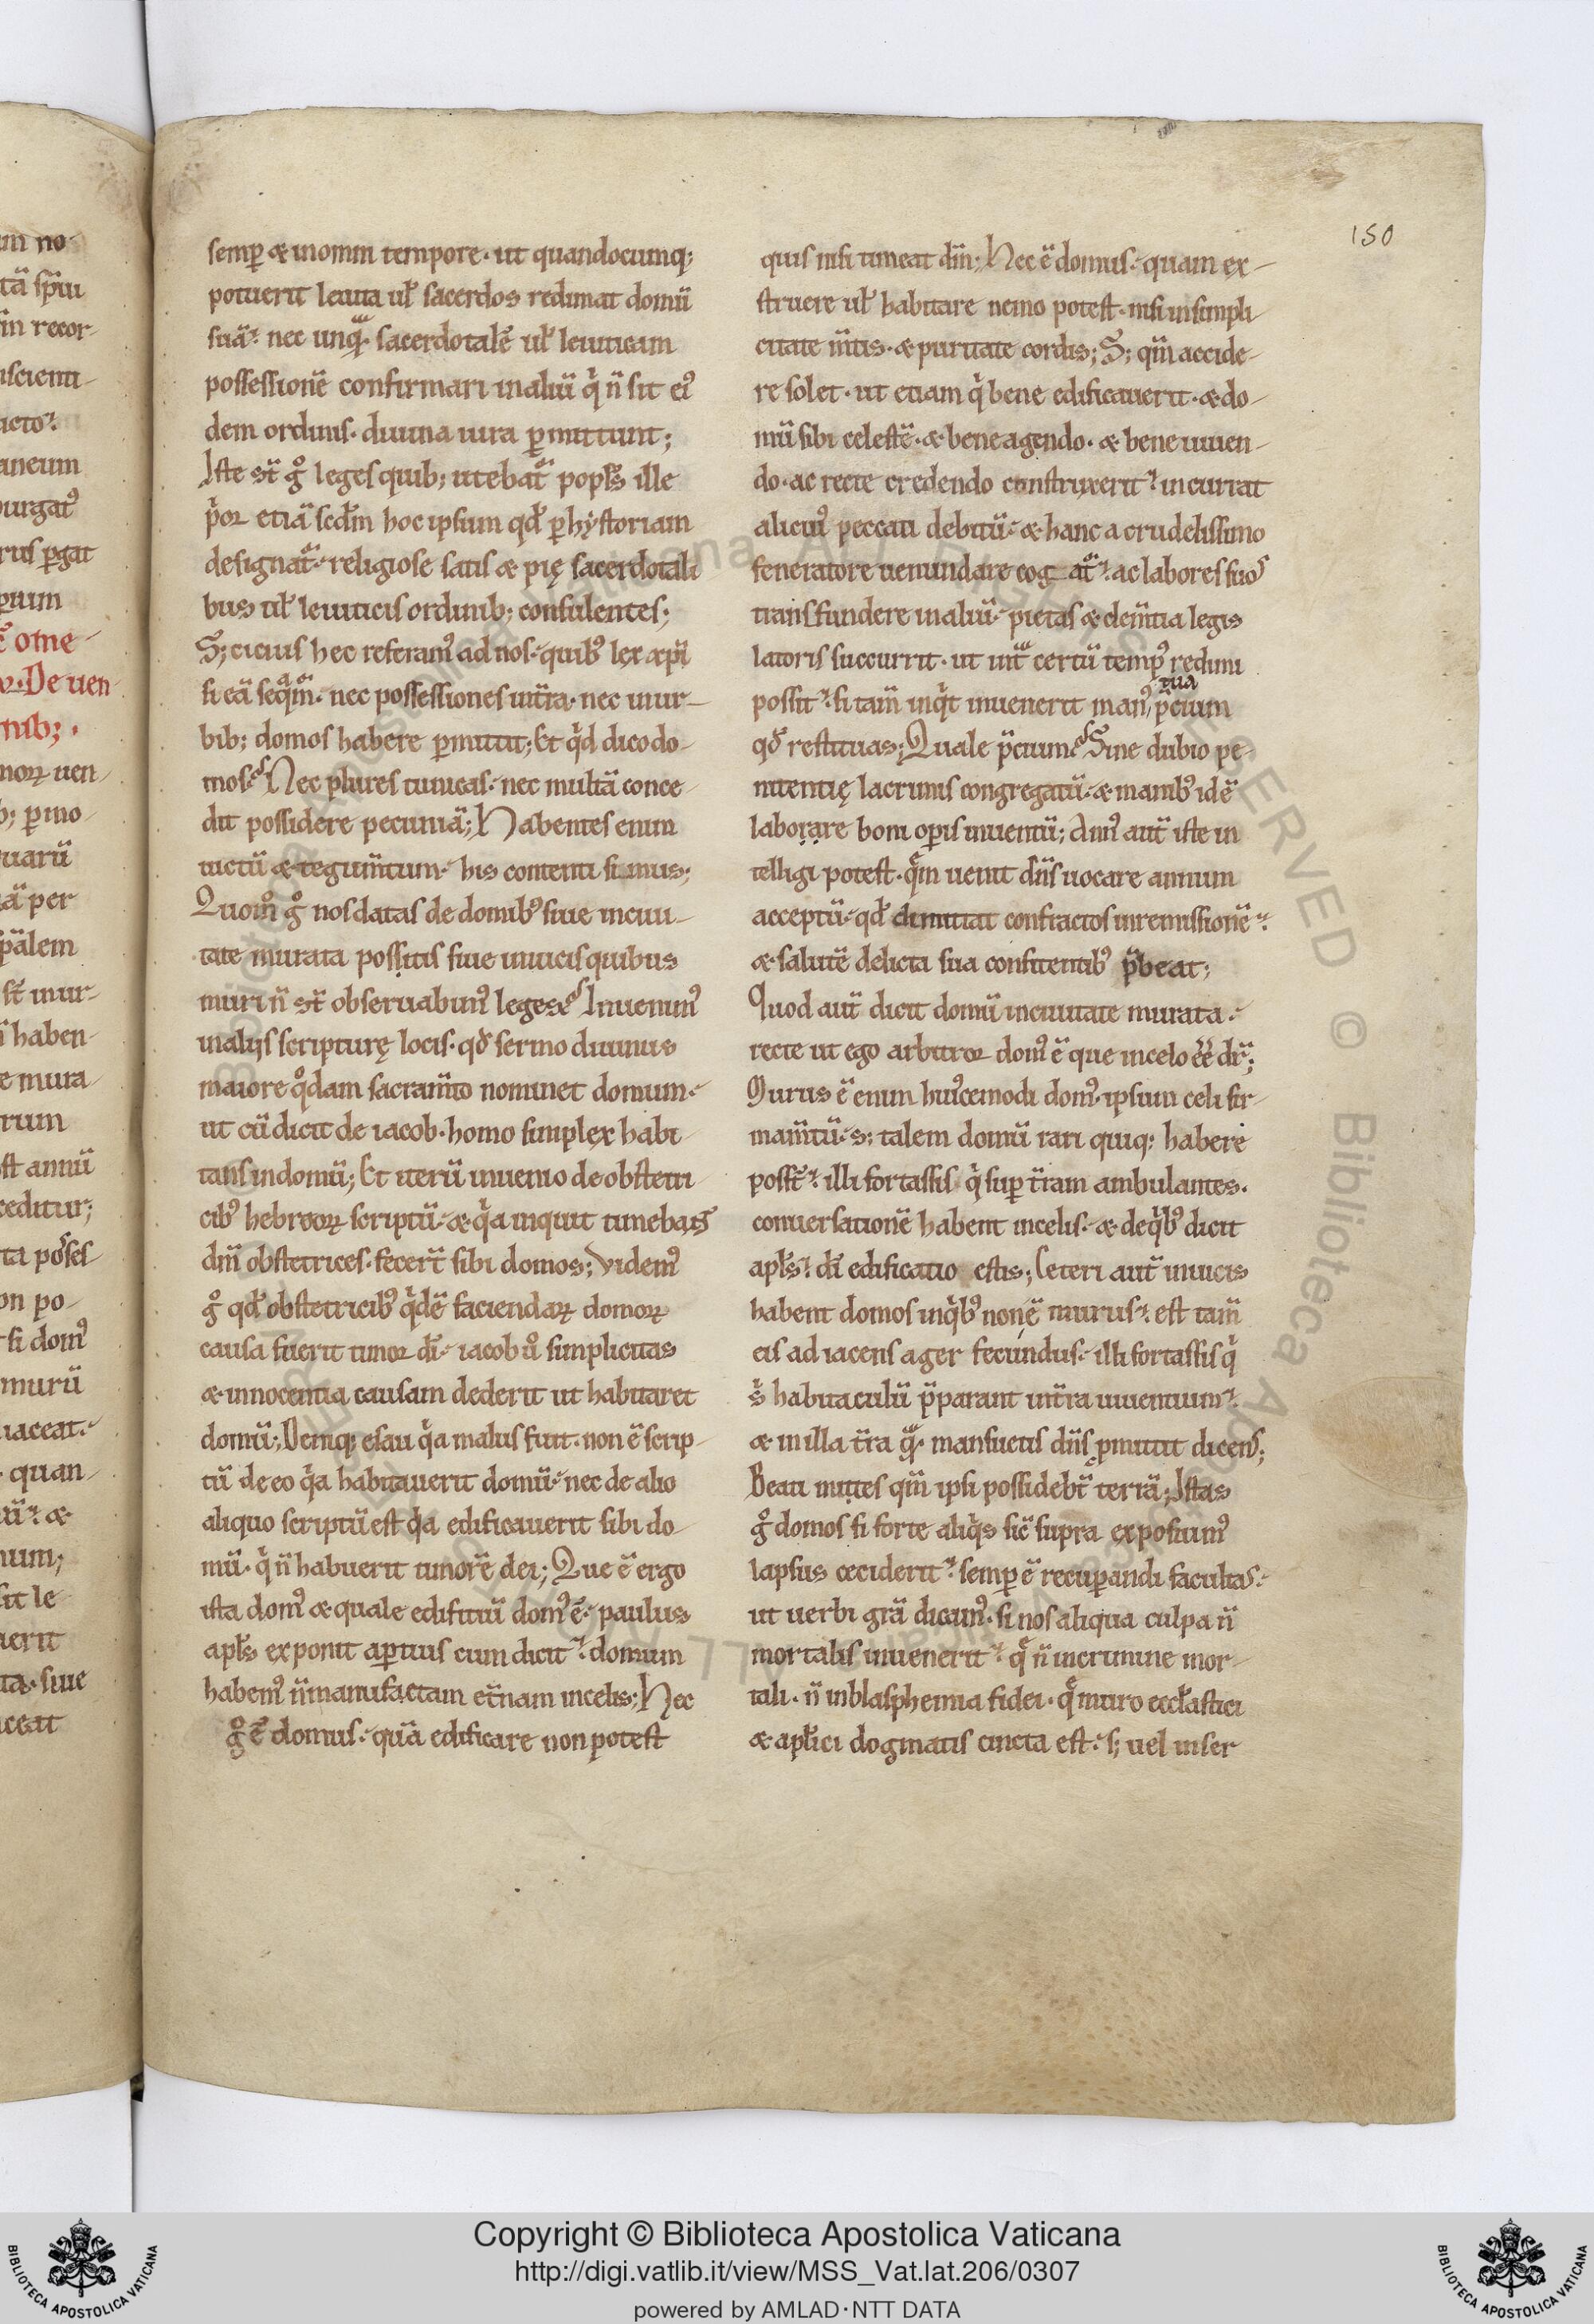 150
semꝑ & inomni tempore· ut quandocumq;
potuerit leuita ul̄ sacerdos redimat domū
suā· nec unqͣ sacerdotalē ul̄ leuiticam
possessionē confirmari inaliū qͥ n̄ sit ei⁹
dem ordinis· diuina iura ꝑmittunt;
Iste st̄ gͦ leges quib; utebat̄ popl̄s ille
pͥor etiā scd̄m hoc ipsum qd̄ ꝑ hystoriam
designat̄· religiose satis & pię sacerdotali
bus ul̄ leuiticis ordinib; consulentes;
S; cicius hec referam⁹ ad nos· quib⁹ lex xp̄i
si eā seqͣm̄· nec possessiones int̄ra· nec inur-
bib; domos habere ꝑmittit; Et qͥd dico do-
mos? Nec plures tunicas· nec multā conce-
dit possidere pecuniā; Habentes enim
uictū & tegum̄tum· his contenti simus;
Quom̊ gͦ nos datas de domib⁹ siue inciui-
tate murata possitis siue inuicis quibus
muri n̄ st̄ obseruabim⁹ leges? Inuenim⁹
inalijs scripturę locis· qd̄ sermo diuinus
maiore qͦdam sacram̄to nominet domum·
ut cū dicit de iacob· homo simplex habi-
tans indomū; Et iterū inuenio de obstetri
cib⁹ hebreoꝝ scriptū· & qͥa inquit timebant
dm̄ obstetrices· fecer̄t sibi domos; Videm⁹
gͦ qd̄ obstetricib⁹ qͥdē faciendaꝝ domoꝝ
causa fuerit timor dī· iacob ů simplicitas
& innocentia causam dederit ut habitaret
domū; Deniq; esau qͥa malus fuit· non ē scrip-
tū de eo qͥa habitauerit domū· nec de alio
aliquo scriptū est qͥa edificauerit sibi do-
mū· qͥ n̄ habuerit timorē dei; Que ē ergo
ista dom⁹ & quale edificiū dom⁹ ē· paulus
apl̄s exponit aꝑtius cum dicit· domum
habem⁹ n̄ manufactam et̄nam incelis; Hec
gͦ ē domus· quā edificare non potest
quis nisi timeat dm̄; Hec ē domus· quam ex-
struere ul̄ habitare nemo potest· nisi insimpli-
citate m̄tis· & puritate cordis; S; qm̄ accide-
re solet· ut etiam qͥ bene edificauerit· & do-
mū sibi celestē· & bene agendo· & bene uiuen-
do· ac recte credendo construxerit· incurrat
alicui⁹ peccati debitū· & hanc a crudelissimo
feneratore uenundare cogat̄· ac labores suos
transfundere inaliū· pietas & clem̄tia legis
latoris succurrit· ut int̄ certū temp⁹ redimi
possit· si tam̄ inqͥt inuenerit man⁹ tua p̄cium
qd̄ restituas; Quale p̄cium? Sine dubio pe-
nitentię lacrimis congregatū· & manib⁹ idē
laborare boni oꝑis inuentū; Ann⁹ aut̄ iste in
telligi potest· qͦm uenit dn̄s uocare annum
acceptū· qd̄ dimittat confractos inremissionē·
& salutē delicta sua confitentib⁹ p̄beat;
Quod aut̄ dicit domū inciuitate murata·
recte ut ego arbitror dom⁹ ē que incelo ēē dr̄;
Murus ē enim hui⁹cemodi dom⁹· ipsum celi fir-
mam̄tū· s; talem domū rari quiq; habere
posst̄· illi fortassis qͥ suꝑ t̄ram ambulantes·
conuersationē habent incelis· & de qͥb⁹ dicit
apl̄s· dī edificatio estis; Ceteri aut̄ inuicis
habent domos inqͥb⁹ non ē murus· est tam̄
eis adiacens ager fecundus· illi fortassis qͥ
sͥ habitaculū p̄parant int̄ra uiuentium·
& in illa t̄ra qͣ mansuetis dn̄s ꝓmittit dicens;
Beati mittes qm̄ ipsi possidebt̄ terrā; Istas
gͦ domos si forte aliqͥs sic̄ supra exposuim⁹
lapsus ceciderit· semꝑ ē recuꝑandi facultas·
ut uerbi grā dicam⁹· si nos aliqua culpa n̄
mortalis inuenerit· q̄ n̄ incrimine mor-
tali· n̄ inblasphemia fidei· q̄ muro eccl̄astici
& apl̄ici dogmatis cincta est· s; uel inser
Copyright © Biblioteca Apostolica Vaticana
http://digi.vatlib.it/view/MSS_Vat.lat.206/0307
powered by AMLAD·NTT DATA